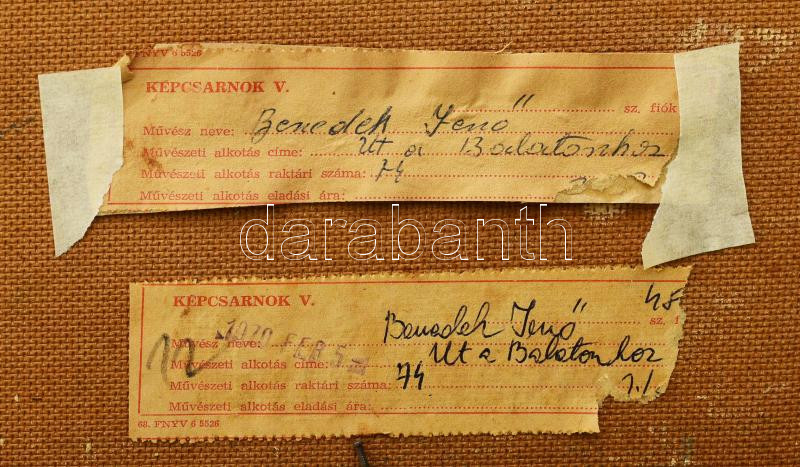 FNYV 6 5526
KÉPCSARNOK V.
sz. fiók
Művész neve: Benedek Jenő
Művészeti alkotás címe: Út a Balatonhoz
Művészeti alkotás raktári száma: 74
Művészeti alkotás eladási ára:
darabanth
KÉPCSARNOK V. 48
sz. f
Művész neve: Benedek Jenő
Művészeti alkotás címe: Út a Balatonhoz
Művészeti alkotás raktári száma: 74
Művészeti alkotás eladási ára:
68. FNYV 6 5526